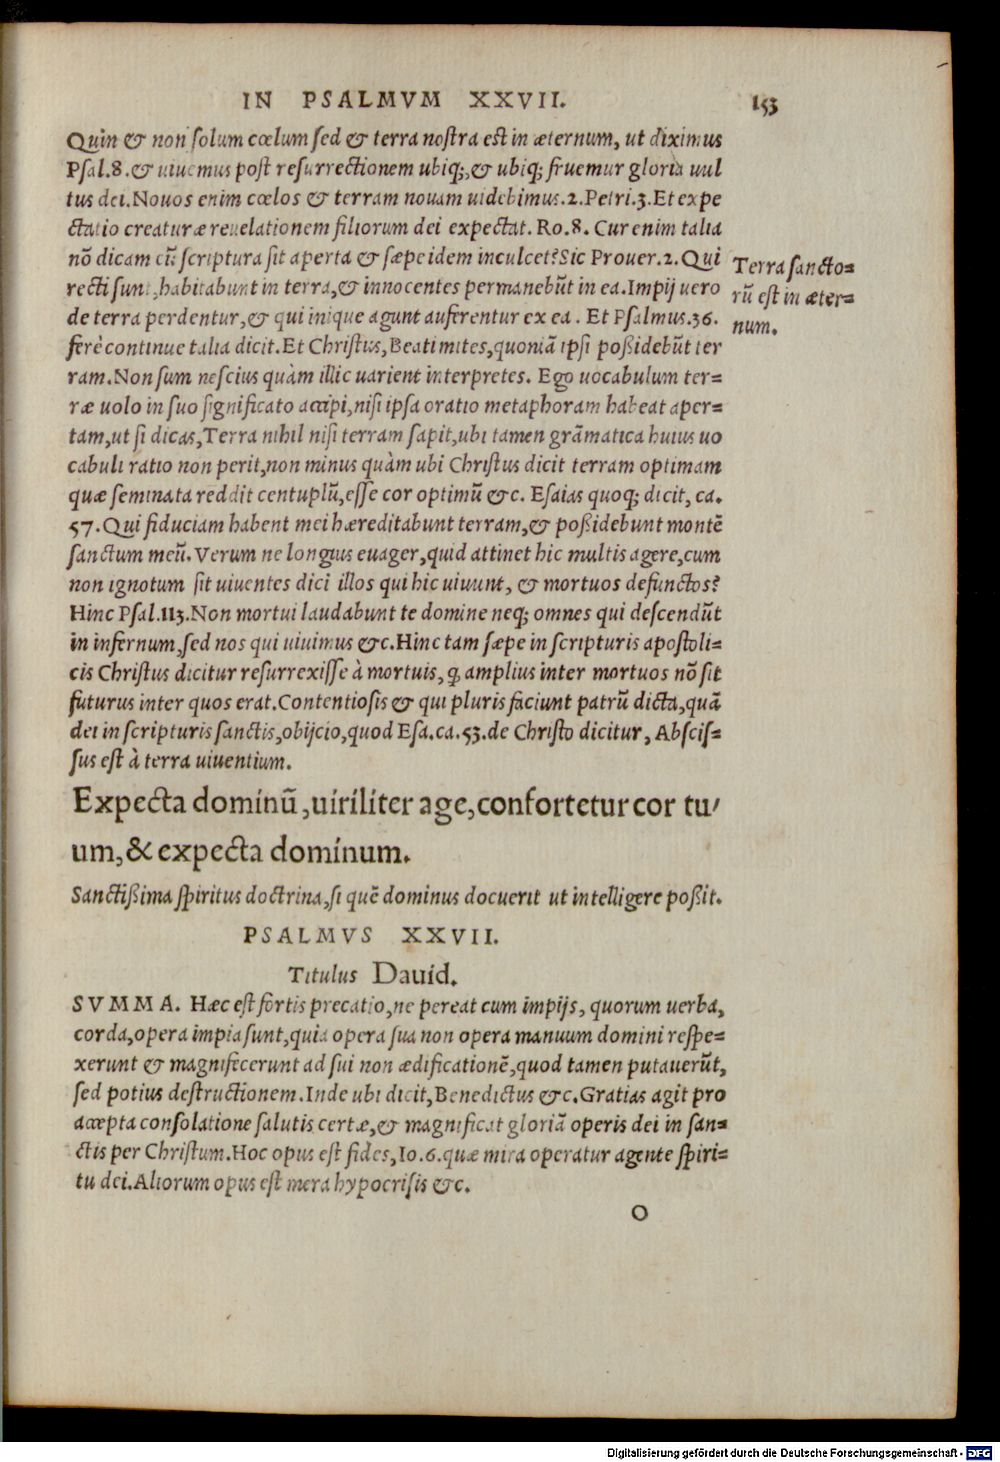 IN PSALMVM XXVII. 153
Quin & non solum cœlum sed & terra nostra est in æternum, ut diximus
Psal.8.& uiuemus post resurrectionem ubiq;,& ubiq; fruemur gloria uul
tus dei.Nouos enim cœlos & terram nouam uidebimus.2.Petri.3.Et expe
ctatio creaturæ reuelationem filiorum dei expectat. Ro.8. Cur enim talia
nõ dicam cũ scriptura sit aperta & sæpe idem inculcet?Sic Prouer.2.Qui
recti sunt,habitabunt in terra,& innocentes permanebũt in ea.Impij uero
de terra perdentur,& qui inique agunt auferentur ex ea. Et Psalmus.36.
ferè continue talia dicit.Et Christus,Beati mites,quoniã ipsi poßidebũt ter
ram.Non sum nescius quàm illic uarient interpretes. Ego uocabulum ter=
ræ uolo in suo significato accipi,nisi ipsa oratio metaphoram habeat aper=
tam,ut si dicas,Terra nihil nisi terram sapit,ubi tamen grãmatica huius uo
cabuli ratio non perit,non minus quàm ubi Christus dicit terram optimam
quæ seminata reddit centuplũ,esse cor optimũ &c. Esaias quoq; dicit, ca.
57.Qui fiduciam habent mei hæreditabunt terram,& poßidebunt montẽ
sanctum meũ.Verum ne longius euager,quid attinet hic multis agere,cum
non ignotum sit uiuentes dici illos qui hic uiuunt, & mortuos defunctos?
Hinc Psal.113.Non mortui laudabunt te domine neq; omnes qui descendũt
in infernum,sed nos qui uiuimus &c.Hinc tam sæpe in scripturis apostoli=
cis Christus dicitur resurrexisse à mortuis, ꝙ amplius inter mortuos nõ sit
futurus inter quos erat.Contentiosis & qui pluris faciunt patrũ dicta,quã
dei in scripturis sanctis,obijcio,quod Esa.ca.53.de Christo dicitur, Abscis=
sus est à terra uiuentium.
Terra sancto=
rũ est in æter=
num.
Expecta dominũ,uiriliter age,confortetur cor tu/
um,& expecta dominum.
Sanctißima spiritus doctrina,si quẽ dominus docuerit ut intelligere poßit.
PSALMVS XXVII.
Titulus Dauid.
SVMMA. Hæc est fortis precatio,ne pereat cum impijs, quorum uerba,
corda,opera impia sunt,quia opera sua non opera manuum domini respe=
xerunt & magnifecerunt ad sui non ædificationẽ,quod tamen putauerũt,
sed potius destructionem.Inde ubi dicit,Benedictus &c.Gratias agit pro
accepta consolatione salutis certæ,& magnificat gloriã operis dei in san=
ctis per Christum.Hoc opus est fides,Io.6.quæ mira operatur agente spiri=
tu dei.Aliorum opus est mera hypocrisis &c.
O
Digitalisierung gefördert durch die Deutsche Forschungsgemeinschaft - DFG